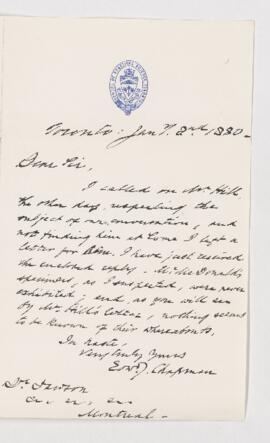 Toronto: Jany. 2nd. 1880-
Dear Sir,
I called on Mr. Hill
the other day respecting the
subject of our conversation, and
not finding him at home I left a
letter for him. I have just received
the enclosed reply. Mr. McDonald's
specimens, as I suspected, were never
exhibited; and, as you will see
by Mr. Hill's letter, nothing seems
to be known of their whereabouts.
In haste,
Very truly Yours
Edw. J. Chapman
Dr. Dawson
Montreal-